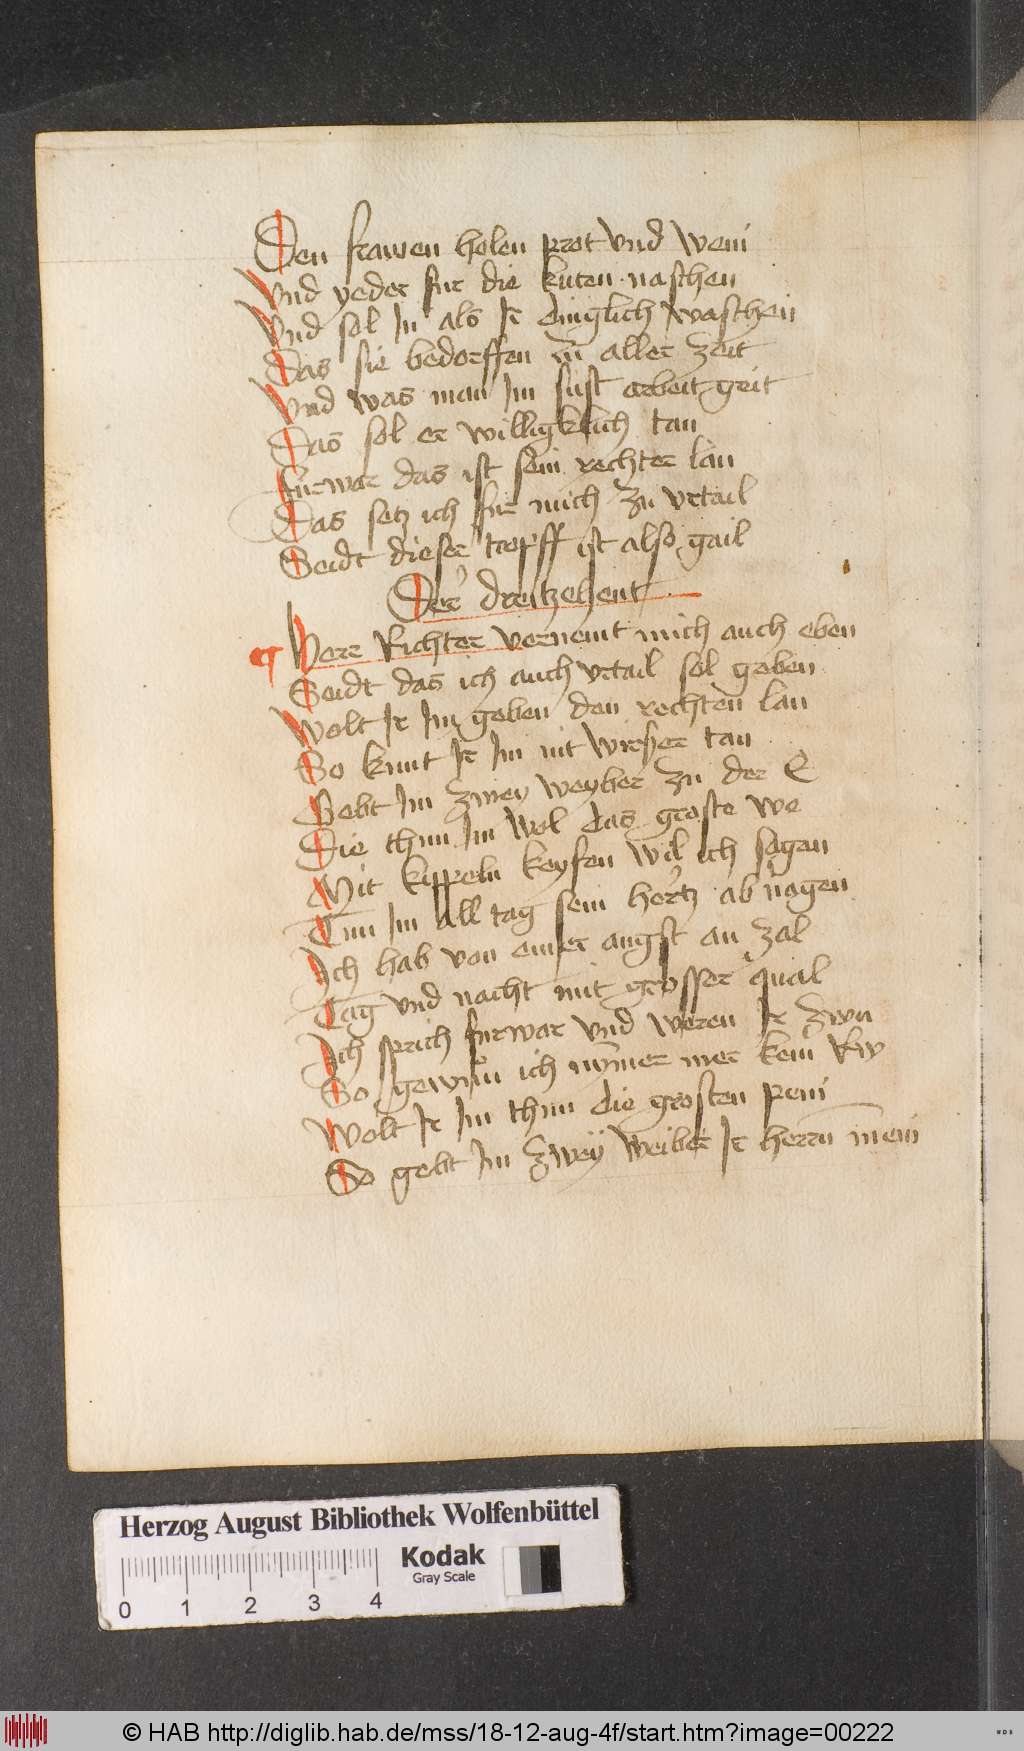 Den frawen holen prot vnd wein
Vnd yeder fur die kuten naschen
Vnd sol In als Ir dinglich waschen
Das sie bedorffen in aller zeit
Vnd was man Im sust arbeit geit
Das sol er willigklich tan
Furwar das ist sein rechter lan
Das setz ich fur mich zu vrtail
Seidt dieser tropff ist also gail
Der dreitzehent
Herr Richter vernemt mich auch eben
Seidt das ich auch vrtail sol geben
Wolt Ir Im geben den rechten lan
So kunt Ir Im nit wirser tan
Gebt Im zwey weyber zu der E
Die thun Im wol das groste we
Mit kippeln keyfen wil ich sagen
Tun Im all tag sein hertz ab nagen
Ich hab von einer angst an zal
Tag vnd nacht mit grosser qual
Ich sprich furwar vnd weren Ir zwu
So gewun ich nymer mer kein Rw
Wolt Ir Im thun die grosten pein
So gebt Im zwey weiber Ir herrn mein
Herzog August Bibliothek Wolfenbüttel
Kodak
Gray Scale
0 1 2 3 4
© HAB http://diglib.hab.de/mss/18-12-aug-4f/start.htm?image=00222